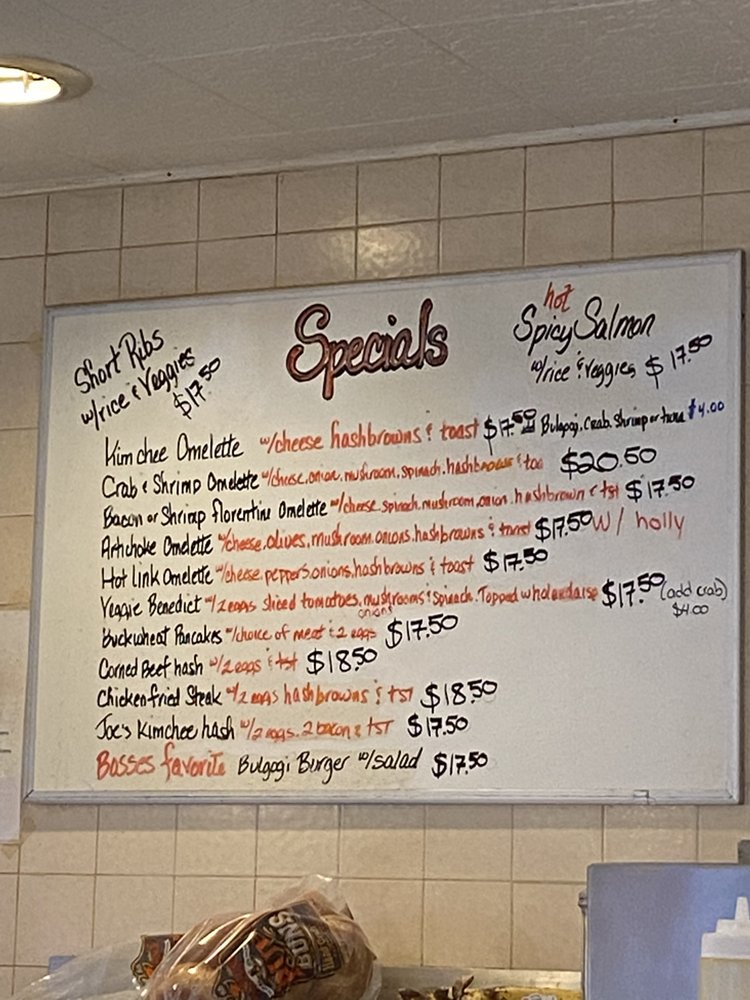 Specials
Short Ribs
w/rice & Veggies
$17.50
hot
Spicy Salmon
w/rice & veggies $17.50
Kimchee Omelette w/cheese hashbrowns & toast $17.50 Bulgogi. Crab. Shrimp or tuna $4.00
Crab & Shrimp Omelette w/cheese.onion.mushroom.spinach.hashbrowns & toa $20.50
Bacon or Shrimp florentine Omelette w/cheese.spinach.mushroom.onion.hashbrown & tst $17.50
Artichoke Omelette w/cheese.olives.mushroom.onions.hashbrowns & toast $17.50 w/ holly
Hot link Omelette w/cheese.peppers.onions.hashbrowns & toast $17.50
Veggie Benedict w/2 eggs sliced tomatoes.mushrooms & spinach.Topped w holendaise $17.50 (add crab)
onions
$4.00
Buckwheat Pancakes w/choice of meat & 2 eggs $17.50
Corned Beef hash w/2 eggs & tst $18.50
Chicken fried Steak w/2 eggs hashbrowns & tst $18.50
Joe's Kimchee hash w/2 eggs. 2 bacon & tst $17.50
Bosses favorite Bulgogi Burger w/salad $17.50
BUNS